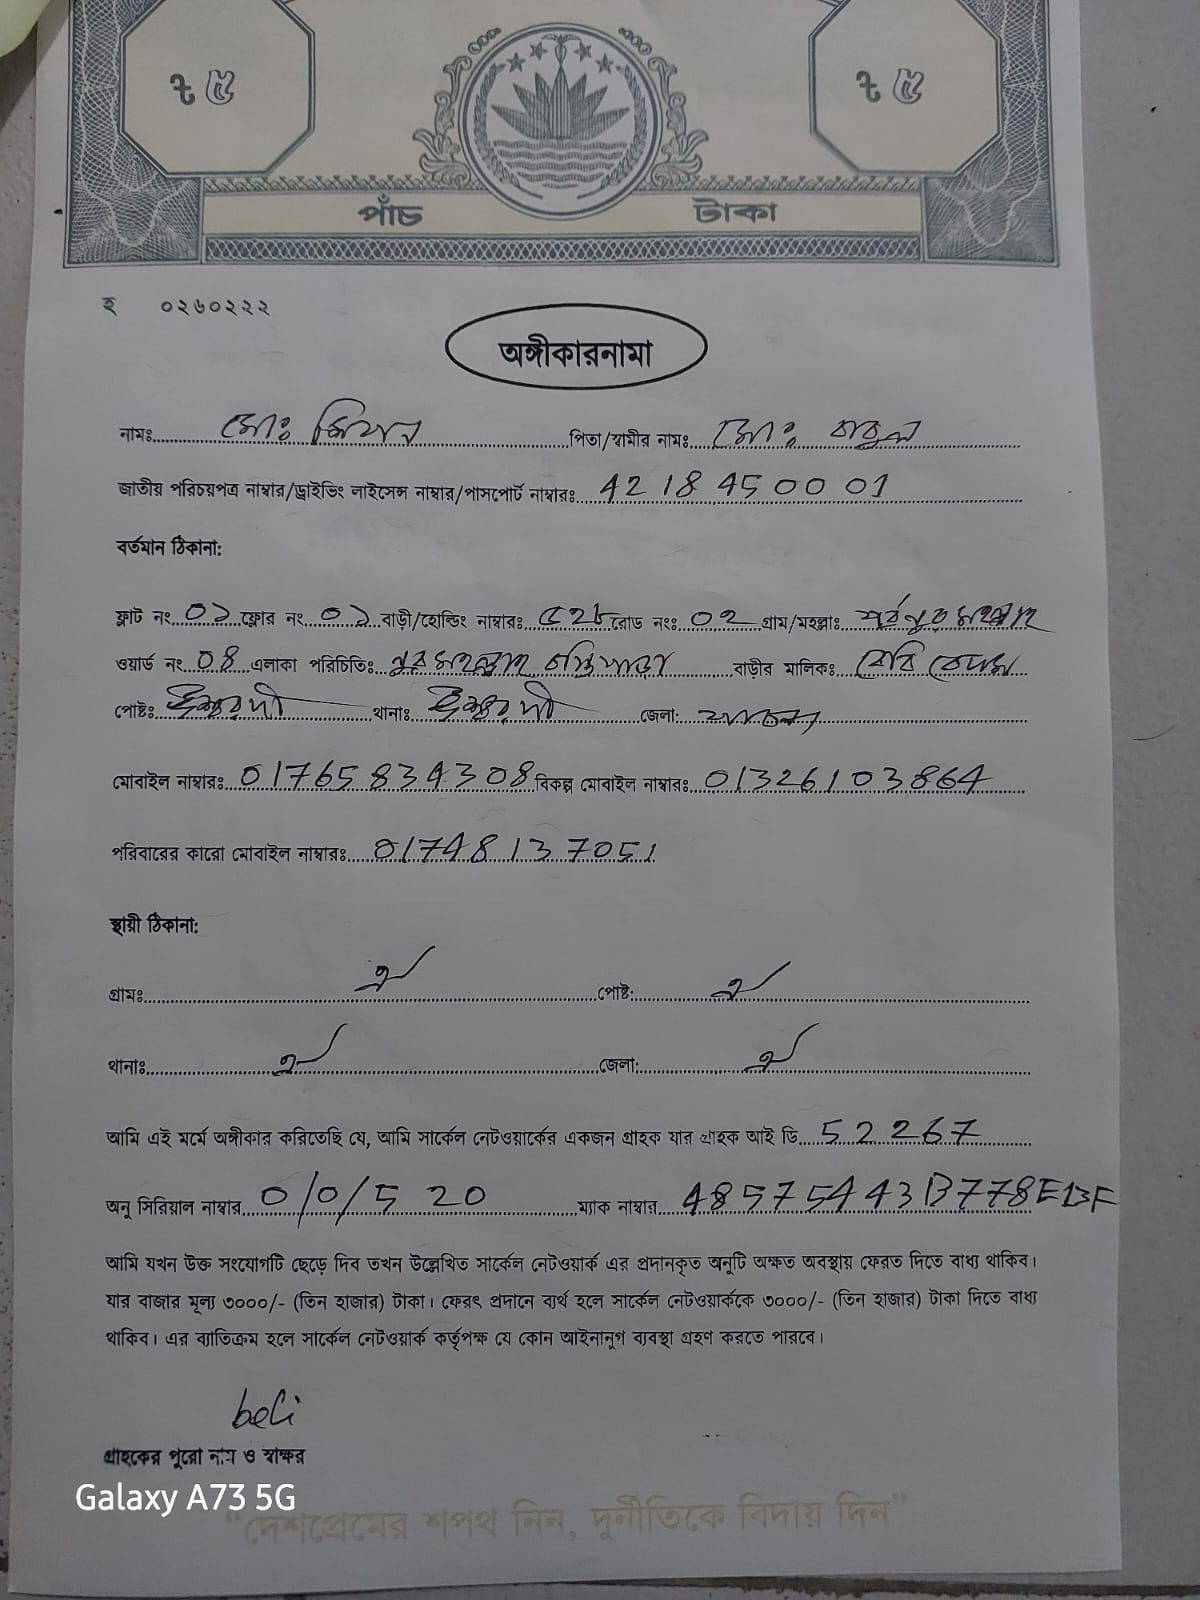 ৼ ৫ ৼ ৫
পাঁচ টাকা
হ ০২৬০২২২
অঙ্গীকারনামা
নামঃ মোঃ মিথান পিতা/স্বামীর নামঃ মোঃ বাবুল
জাতীয় পরিচয়পত্র নাম্বার/ড্রাইভিং লাইসেন্স নাম্বার/পাসপোর্ট নাম্বারঃ 42 18 45 00 01
বর্তমান ঠিকানা:
ফ্লাট নং 0১ ফ্লোর নং 0১ বাড়ী/হোল্ডিং নাম্বারঃ রোড নংঃ 0২ গ্রাম/মহল্লাঃ পূর্বনুরমহল্লা
ওয়ার্ড নং 08 এলাকা পরিচিতিঃ নুরমহল্লা বস্তিপাড়া বাড়ীর মালিকঃ বেবি বেগম
পোষ্টঃ ঈশ্বরদী থানাঃ ঈশ্বরদী জেলা: পাবনা
মোবাইল নাম্বারঃ 01765834308 বিকল্প মোবাইল নাম্বারঃ 01326103864
পরিবারের কারো মোবাইল নাম্বারঃ 01748137051
স্থায়ী ঠিকানা:
গ্রামঃ ঐ পোষ্ট: ঐ
থানাঃ ঐ জেলা: ঐ
আমি এই মর্মে অঙ্গীকার করিতেছি যে, আমি সার্কেল নেটওয়ার্কের একজন গ্রাহক যার গ্রাহক আই ডি 52267
অনু সিরিয়াল নাম্বার 0/0/5 20 ম্যাক নাম্বার 4857544313778EBF
আমি যখন উক্ত সংযোগটি ছেড়ে দিব তখন উল্লেখিত সার্কেল নেটওয়ার্ক এর প্রদানকৃত অনুটি অক্ষত অবস্থায় ফেরত দিতে বাধ্য থাকিব।
যার বাজার মূল্য ৩০০০/- (তিন হাজার) টাকা। ফেরৎ প্রদানে ব্যর্থ হলে সার্কেল নেটওয়ার্ককে ৩০০০/- (তিন হাজার) টাকা দিতে বাধ্য
থাকিব। এর ব্যাতিক্রম হলে সার্কেল নেটওয়ার্ক কর্তৃপক্ষ যে কোন আইনানুগ ব্যবস্থা গ্রহণ করতে পারবে।
beli
গ্রাহকের পুরো নাম ও স্বাক্ষর
Galaxy A73 5G
"দেশপ্রেমের শপথ নিন, দুর্নীতিকে বিদায় দিন"